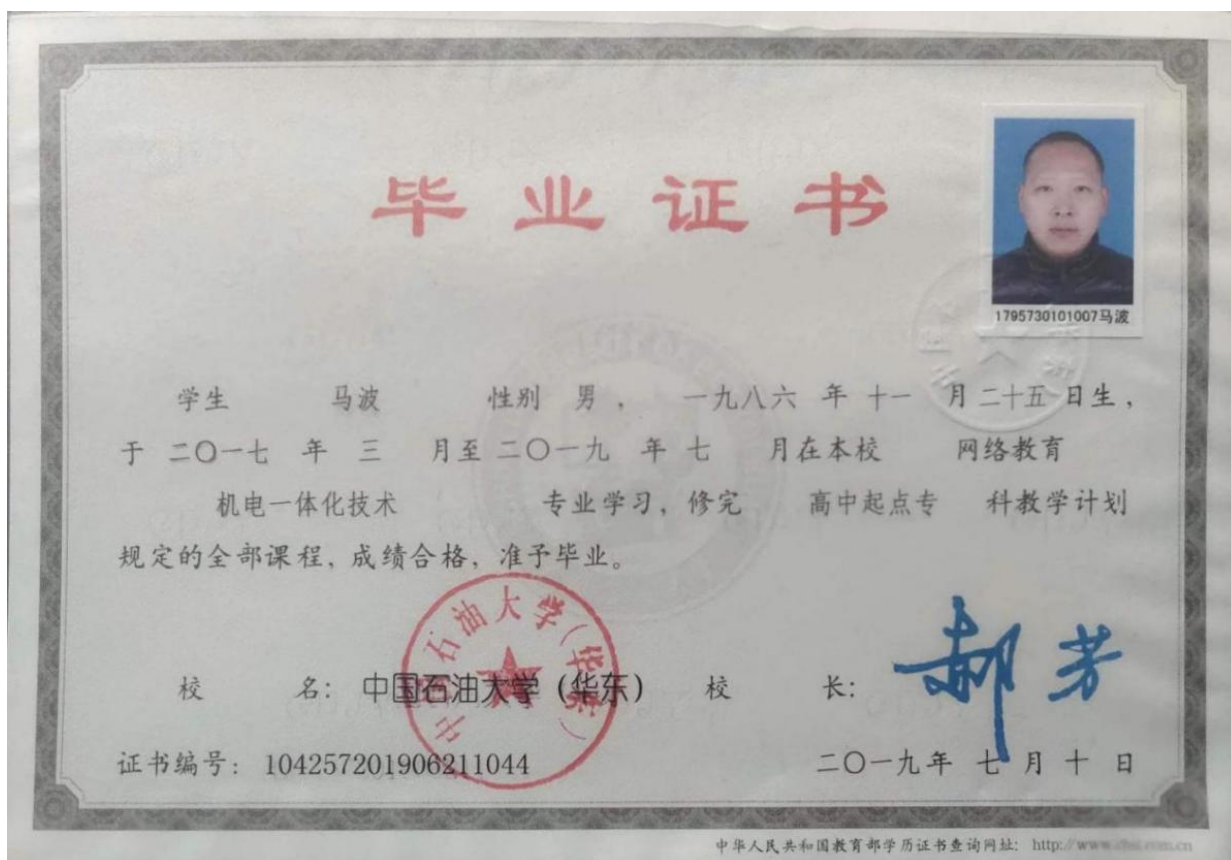 毕业证书
1795730101007马波
学生 马波 性别 男， 一九八六 年 十一 月 二十五 日生，
于 二〇一七 年 三 月至 二〇一九 年 七 月在本校 网络教育
机电一体化技术 专业学习，修完 高中起点专 科教学计划
规定的全部课程，成绩合格，准予毕业。
中国石油大学(华东)
校 名：中国石油大学（华东） 校 长：郝芳
证书编号：104257201906211044 二〇一九年 七 月 十 日
中华人民共和国教育部学历证书查询网址：http://www.chsi.com.cn